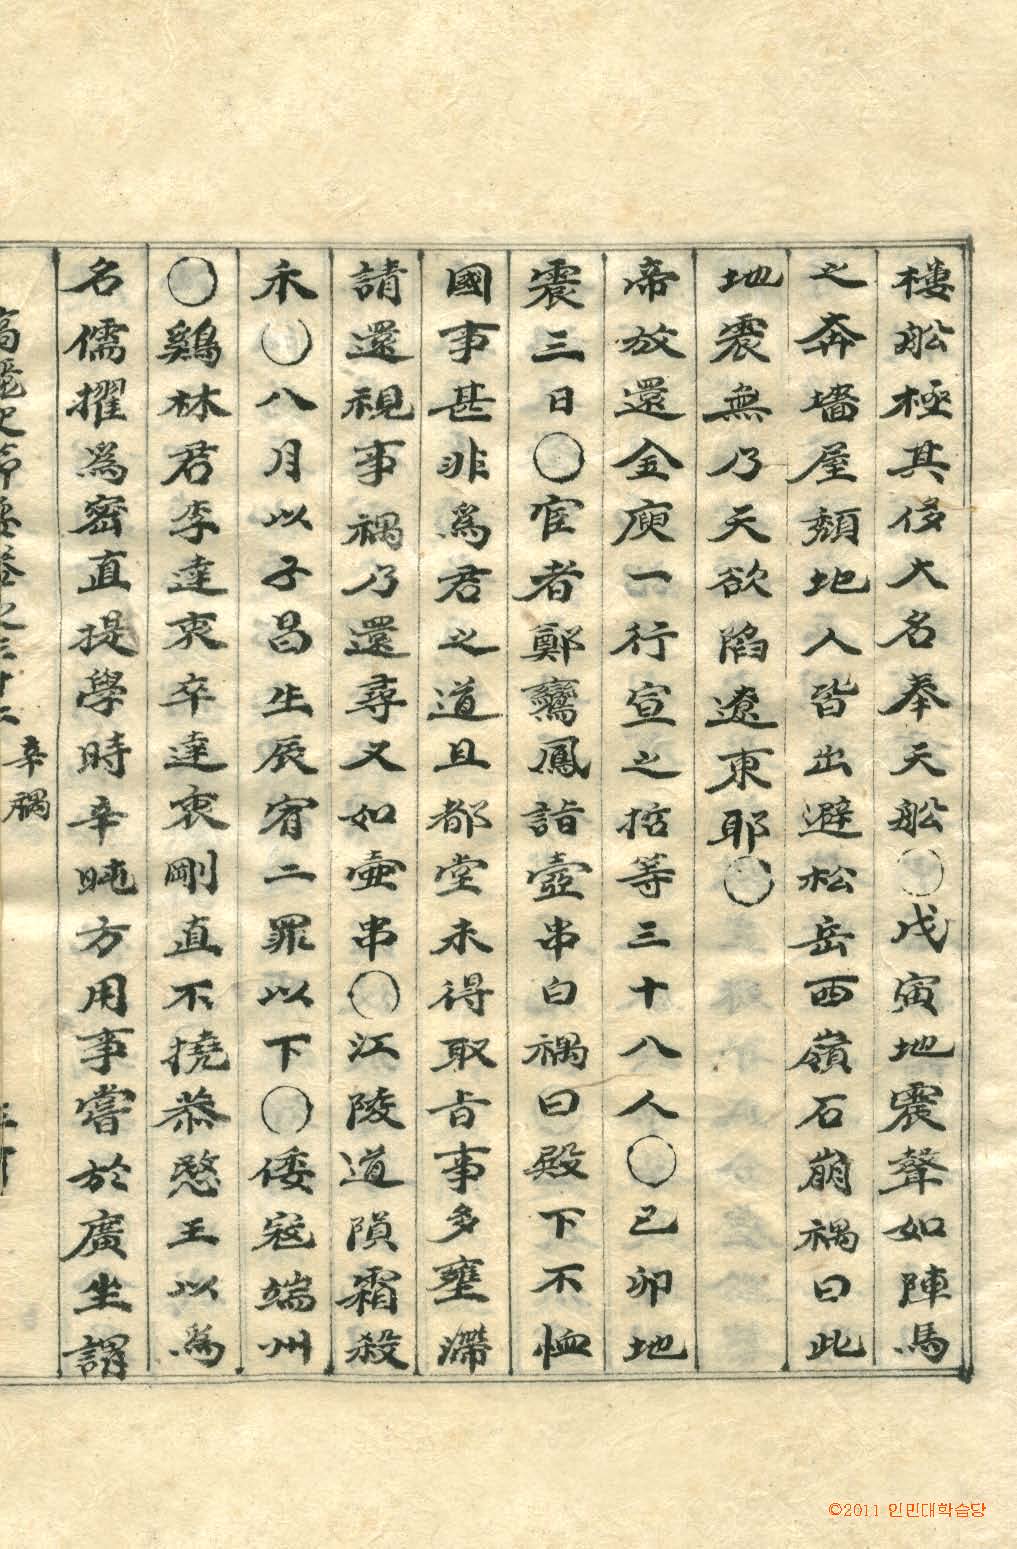 樓舩極其侈大名奉天舩○戊寅地震聲如陣馬
之奔墻屋頹地人皆出避松岳西嶺石崩禑曰此
地震無乃天欲陷遼東耶○
帝放還金庾一行宣之括等三十八人○己卯地
震三日○宦者鄭鸞鳳詣壺串白禑曰殿下不恤
國事甚非爲君之道且都堂未得取旨事多壅滯
請還視事禑乃還尋又如壺串○江陵道隕霜殺
禾○八月以子昌生辰宥二罪以下○倭寇端州
○鷄林君李達衷卒達衷剛直不撓恭愍王以爲
名儒擢爲密直提學時辛旽方用事嘗於廣坐謂
高麗史節要卷之三十二 辛禑
©2011 인민대학습당